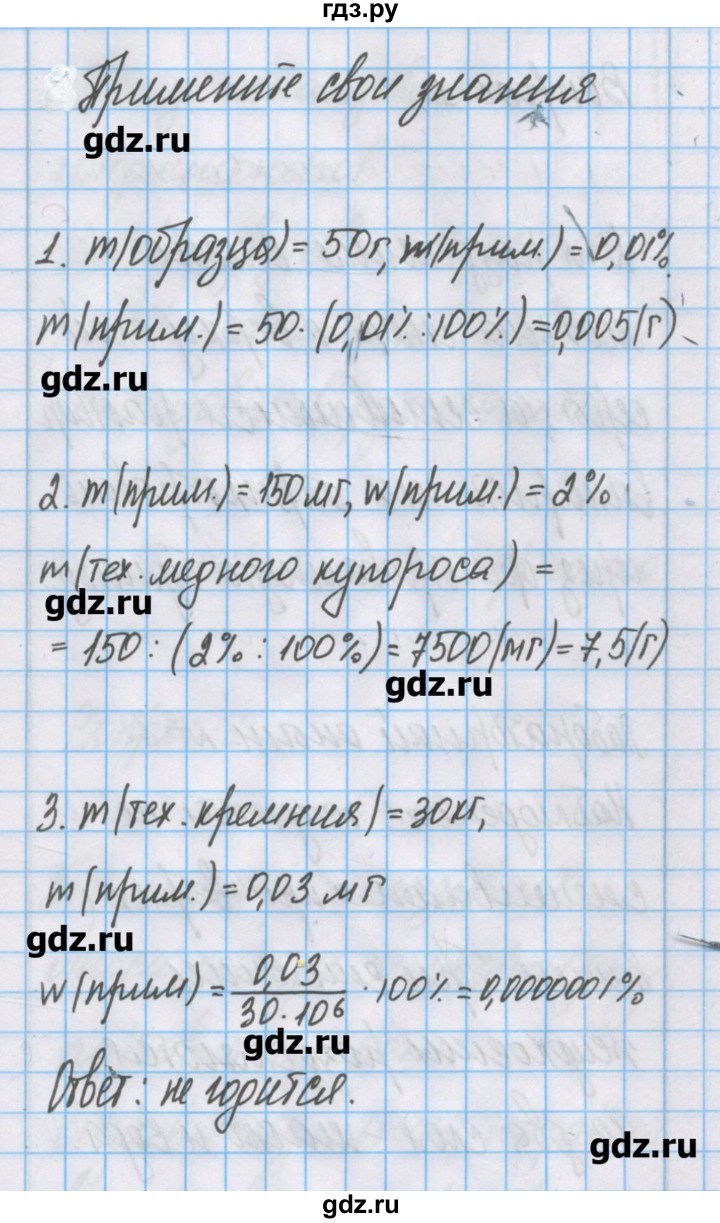 гдз.ру
Примените свои знания
gdz.ru
1. m(образца) = 50г, m(прим.) = 0,01%
m(прим.) = 50·(0,01% : 100%) = 0,005(г)
gdz.ru
2. m(прим.) = 150мг, w(прим.) = 2%
m(тех. медного купороса) =
gdz.ru
= 150 : (2% : 100%) = 7500(мг) = 7,5(г)
gdz.ru
3. m(тех. кремния) = 30кг,
m(прим.) = 0,03 мг
gdz.ru
w(прим) = 0,03 / 30·10⁶ · 100% = 0,0000001%
gdz.ru
Ответ: не годится.
gdz.ru
gdz.ru